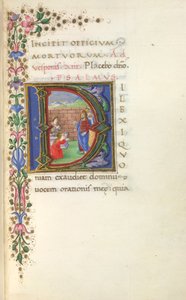 INCIPIT OFFICIVM
MORTVORVM. AD
vesperis. ant. Placebo dño.
PSALMVS
DILEXI QVO
niam exaudiet dominus
uocem orationis meę quia